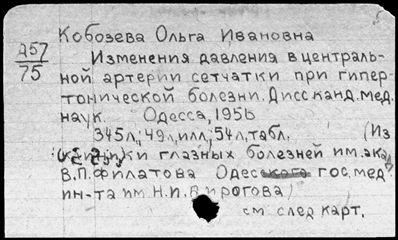 Кобозева Ольга Ивановна
Д57
75
Изменения давления в централь-
ной артерии сетчатки при гипер-
тонической болезни. Дисс канд. мед.
наук. Одесса, 1956
345л., 49л, илл, 54л, табл. (Из
клиники глазных болезней им. акад.
В.П. Филатова Одесского гос. мед
ин-та им. Н.И. Пирогова)
см. след карт.